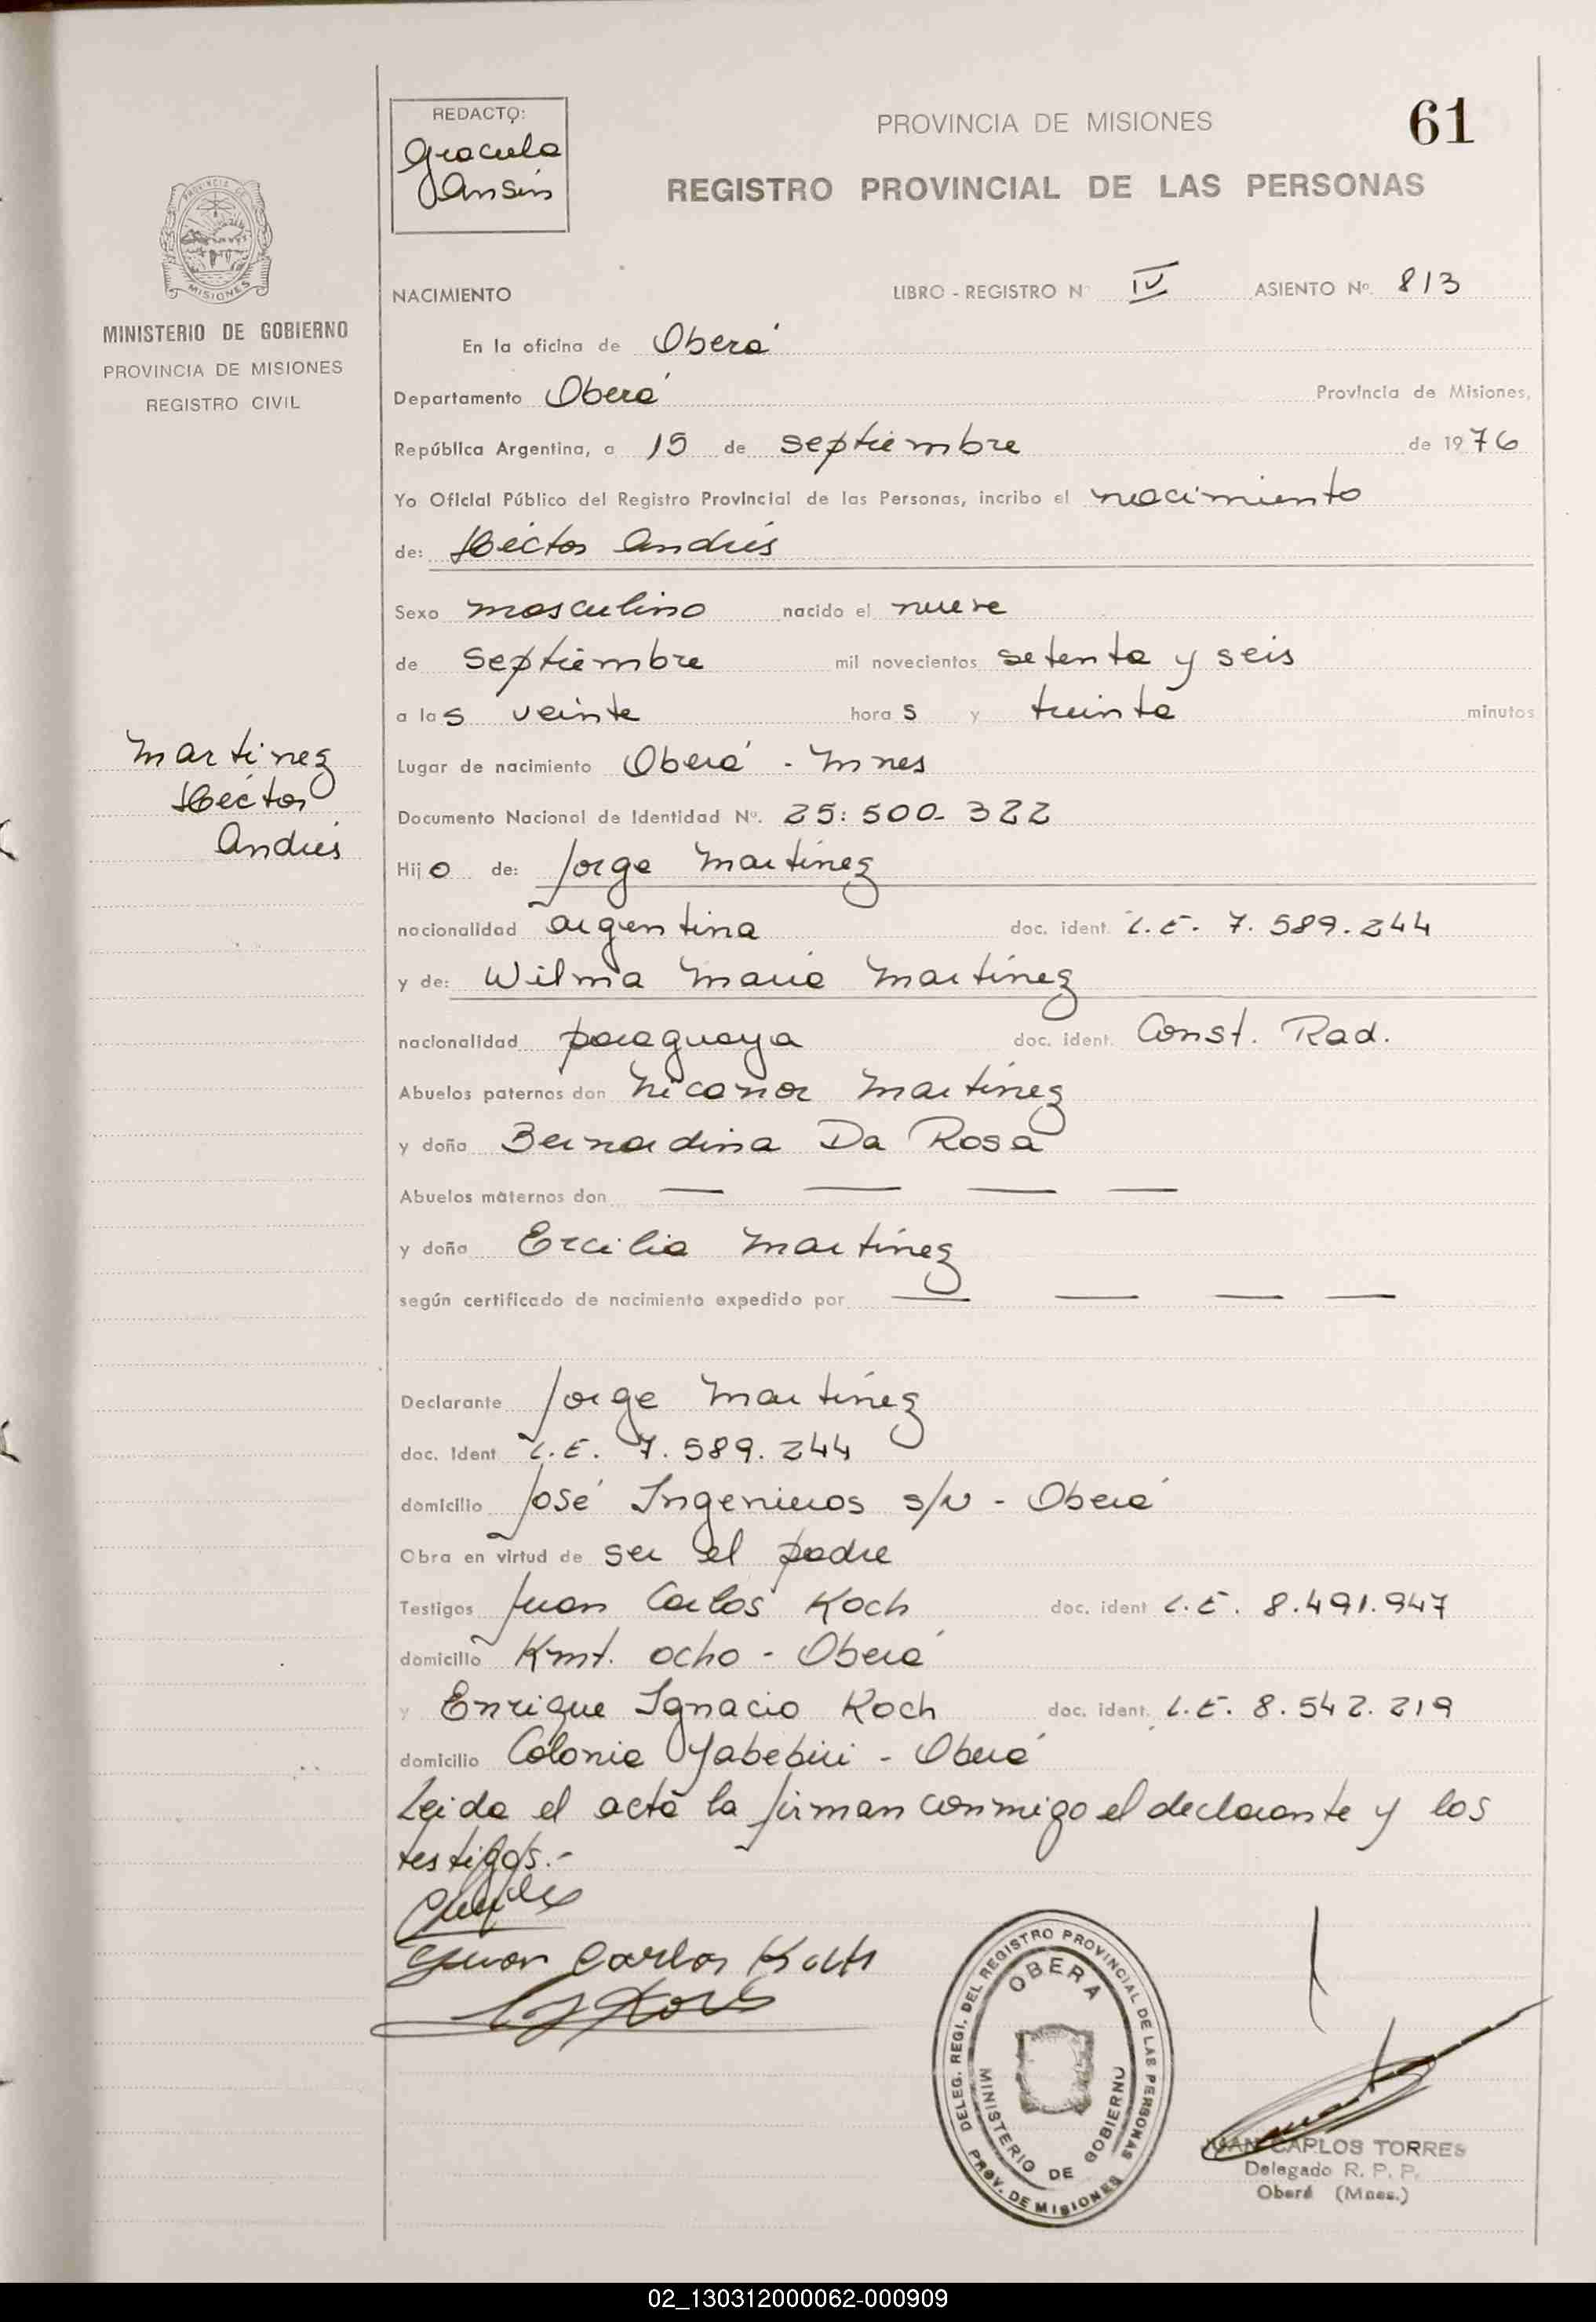 REDACTO:
Graciela
Ansin
PROVINCIA DE MISIONES
61
REGISTRO PROVINCIAL DE LAS PERSONAS
PROVINCIA DE
MISIONES
MINISTERIO DE GOBIERNO
PROVINCIA DE MISIONES
REGISTRO CIVIL
NACIMIENTO LIBRO - REGISTRO Nº IV ASIENTO Nº. 813
En la oficina de Oberá
Departamento Oberá Provincia de Misiones,
República Argentina, a 15 de septiembre de 1976
Yo Oficial Público del Registro Provincial de las Personas, incribo el nacimiento
de: Héctor Andrés
Sexo masculino nacido el nueve
de septiembre mil novecientos setenta y seis
a las veinte horas y treinta minutos
Martinez
Héctor
Andrés
Lugar de nacimiento Oberá - Mnes
Documento Nacional de Identidad Nº. 25:500.322
Hijo de: Jorge Martínez
nacionalidad argentina doc. ident. L.E. 7.589.244
y de: Wilma María Martínez
nacionalidad paraguaya doc. ident. Const. Rad.
Abuelos paternos don Nicanor Martínez
y doña Bernardina Da Rosa
Abuelos maternos don — — — —
y doña Ercilia Martínez
según certificado de nacimiento expedido por — — — —
Declarante Jorge Martínez
doc. Ident L.E. 7.589.244
domicilio José Ingenieros s/n - Oberá
Obra en virtud de ser el padre
Testigos Juan Carlos Koch doc. ident L.E. 8.491.947
domicilio Kmt. ocho - Oberá
y Enrique Ignacio Koch doc. ident. L.E. 8.542.219
domicilio Colonia Yabebiri - Oberá
Leida el acta la firman conmigo el declarante y los
testigos.-
Juan Carlos Koch
DELEG. REGI. DEL REGISTRO PROVINCIAL DE LAS PERSONAS
OBERA
MINISTERIO DE GOBIERNO
PROV. DE MISIONES
JUAN CARLOS TORRES
Delegado R. P. P.
Oberá (Mnes.)
02_130312000062-000909